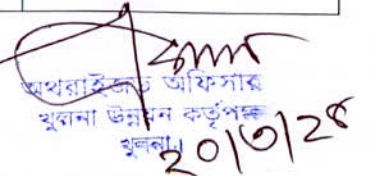 অথরাইজড অফিসার
খুলনা উন্নয়ন কর্তৃপক্ষ
খুলনা।
২০/৩/২৫